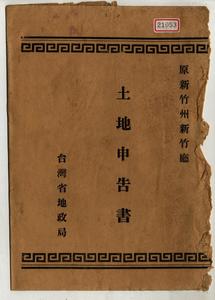 21053
原新竹州新竹廳
土地申告書
台灣省地政局